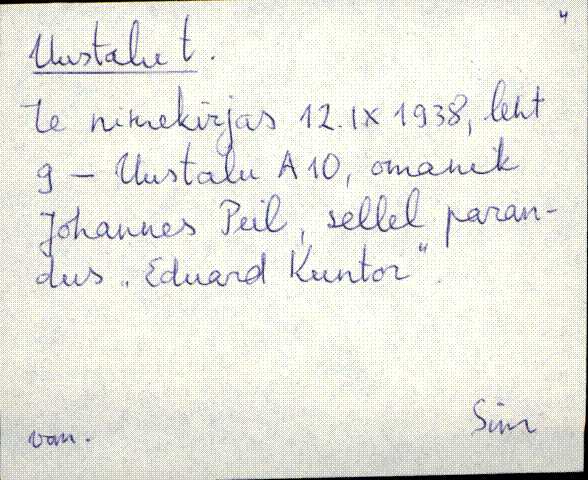 Uustalu t.
te nimekirjas 12.IX 1938, leht
9 – Uustalu A 10, omanik
Johannes Peil, sellel paran-
dus „Eduard Kuntor".
van. Sim